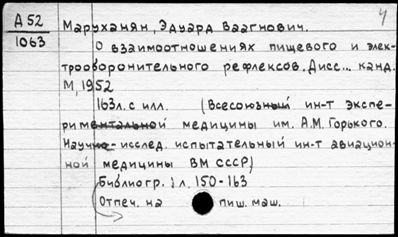 4
А 52
1063
Маруханян, Эдуард Ваагнович.
О взаимоотношениях пищевого и элек-
трооборонительного рефлексов. Дисс... канд.
М, 1952
163л. с илл. (Всесоюзный ин-т экспе-
риментальной медицины им. А.М. Горького.
Научно-исслед. испытательный ин-т авиацион-
ной медицины ВМ СССР)
Библиогр.: л. 150-163
Отпеч. на пиш. маш.